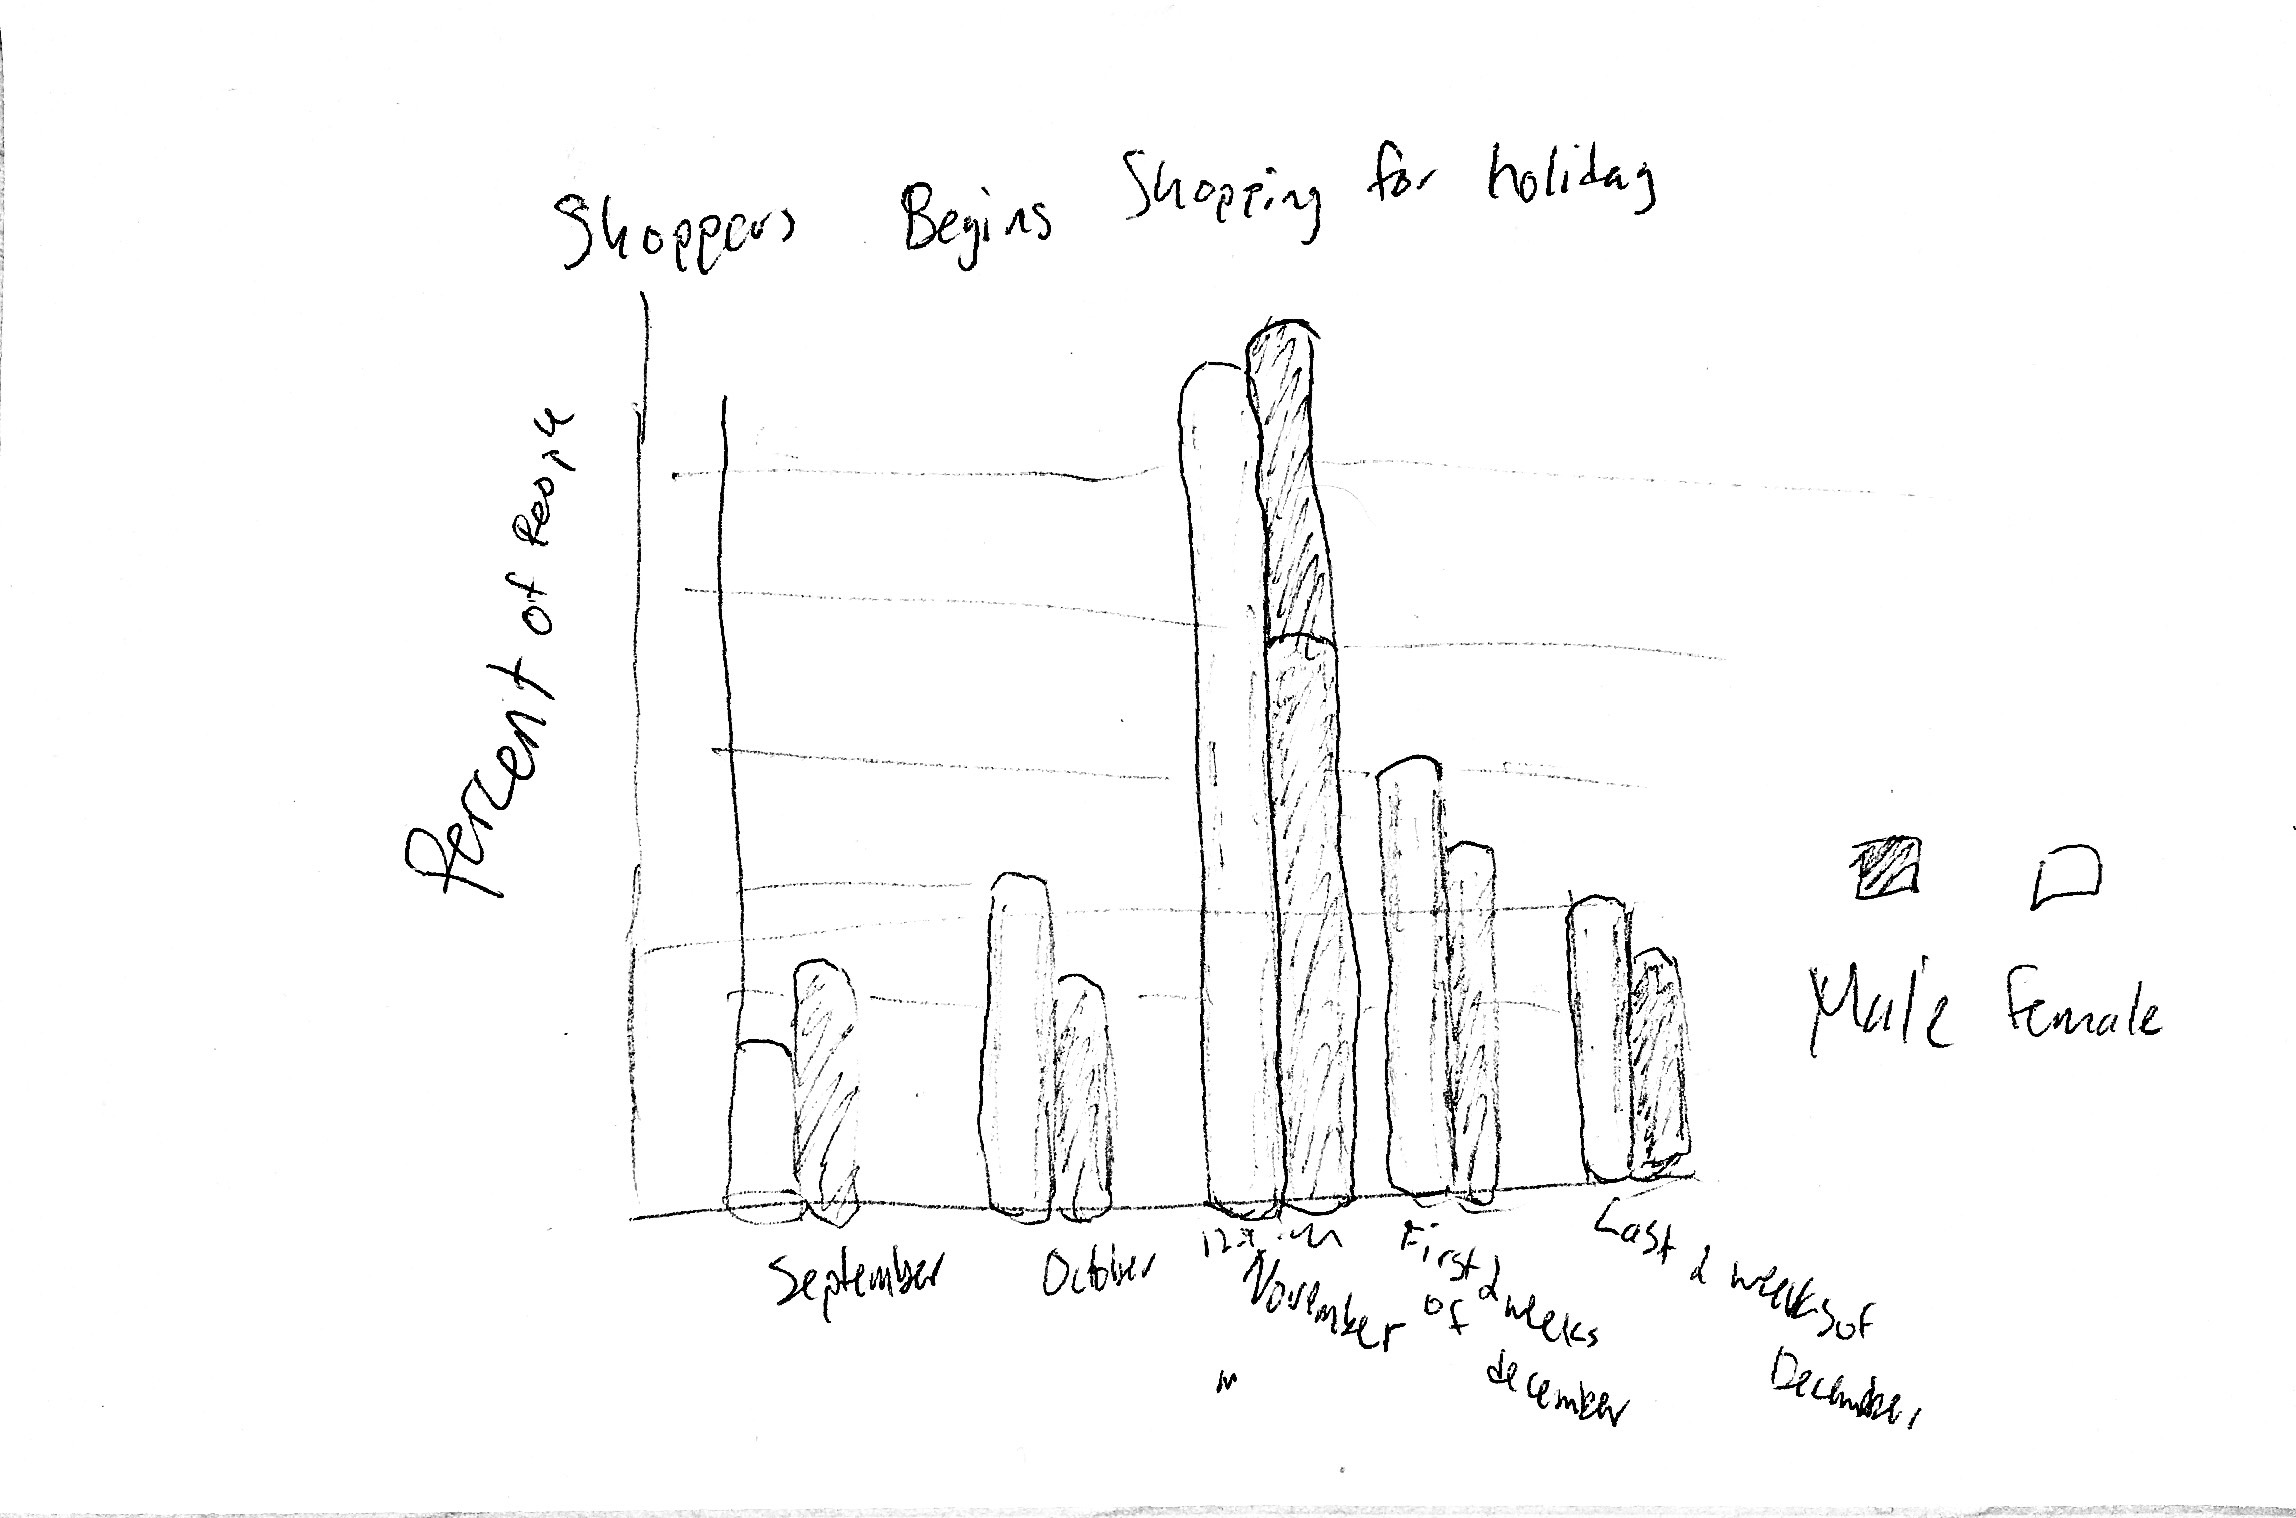 Shoppers Begins Shopping for holiday
Percent of People
Male Female
September
October
November
First 2 weeks
of
december
Last 2 weeks of
December,